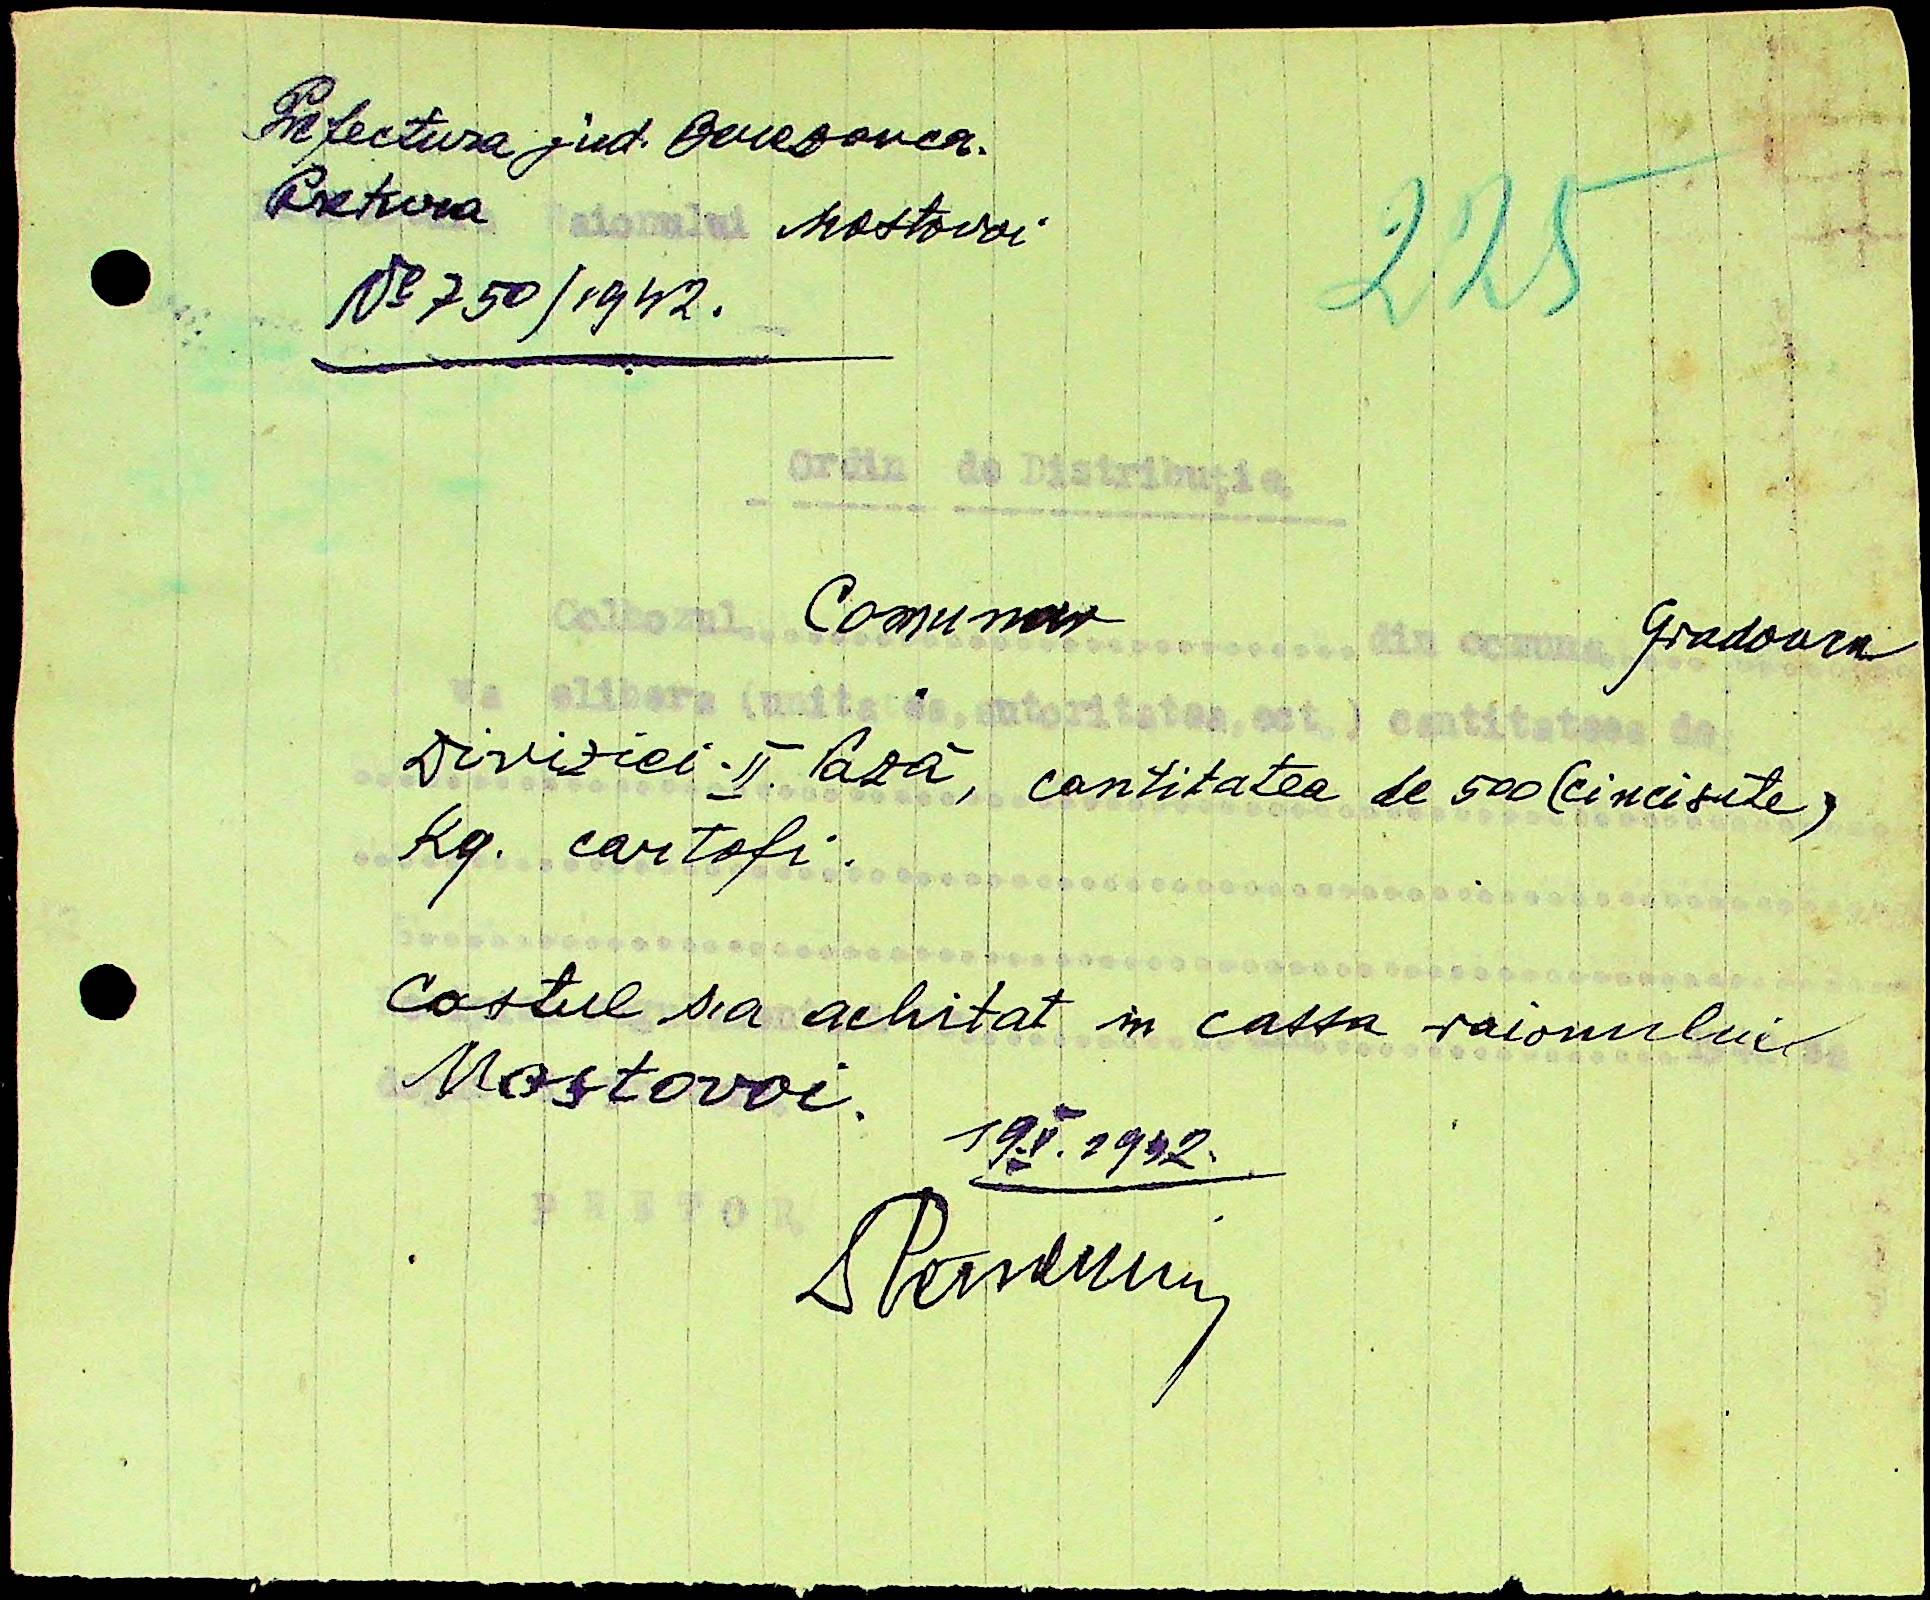 Prefectura jud. Berezovca.
Pretura Raionului Mostovoi
225
№ 750/1942.
Ordin de Distribuţie
Colhozul Comunar din comuna Gradovca
va elibera (unitatea, autoritatea, ect.) cantitatea de
Diviziei II. Pază, cantitatea de 500 (cincisute)
Kg. cartofi.
Costul s'a achitat in cassa raionului
Mostovoi.
19.V.1942.
PRETOR